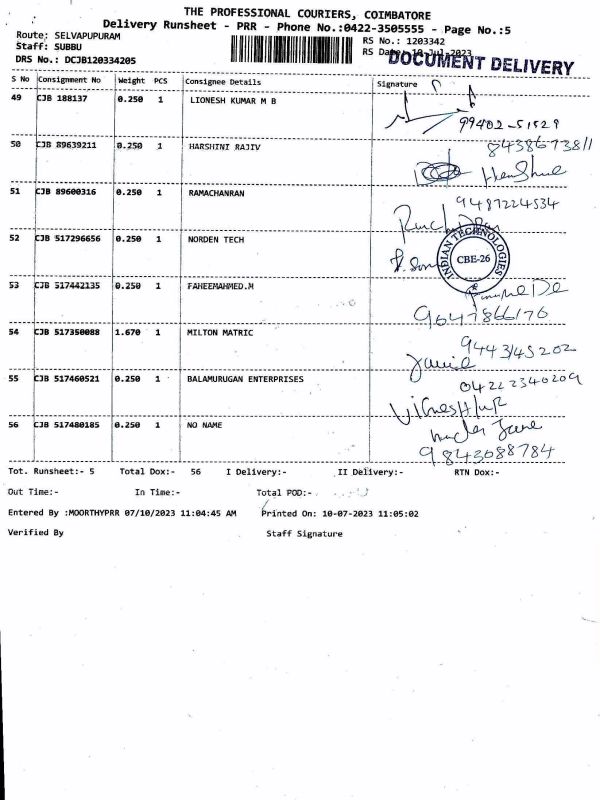 THE PROFESSIONAL COURIERS, COIMBATORE
Delivery Runsheet - PRR - Phone No.:0422-3505555 - Page No.:5
Route: SELVAPUPURAM
Staff: SUBBU
DRS No.: DCJB120334205
RS No.: 1203342
RS Date: 10-Jul-2023
DOCUMENT DELIVERY
S No Consignment No Weight PCS Consignee Details Signature
49 CJB 188137 0.250 1 LIONESH KUMAR M B
99402-51529
50 CJB 89639211 0.250 1 HARSHINI RAJIV
8438673811
51 CJB 89600316 0.250 1 RAMACHANRAN
9487224534
52 CJB 517296656 0.250 1 NORDEN TECH
INDIAN TECHNOLOGIES
CBE-26
53 CJB 517442135 0.250 1 FAHEEMAHMED.M
9647866176
54 CJB 517350088 1.670 1 MILTON MATRIC
9443145202
55 CJB 517460521 0.250 1 BALAMURUGAN ENTERPRISES
04222340209
56 CJB 517480185 0.250 1 NO NAME
9843088784
Tot. Runsheet:- 5 Total Dox:- 56 I Delivery:- II Delivery:- RTN Dox:-
Out Time:- In Time:- Total POD:-
Entered By :MOORTHYPRR 07/10/2023 11:04:45 AM Printed On: 10-07-2023 11:05:02
Verified By Staff Signature